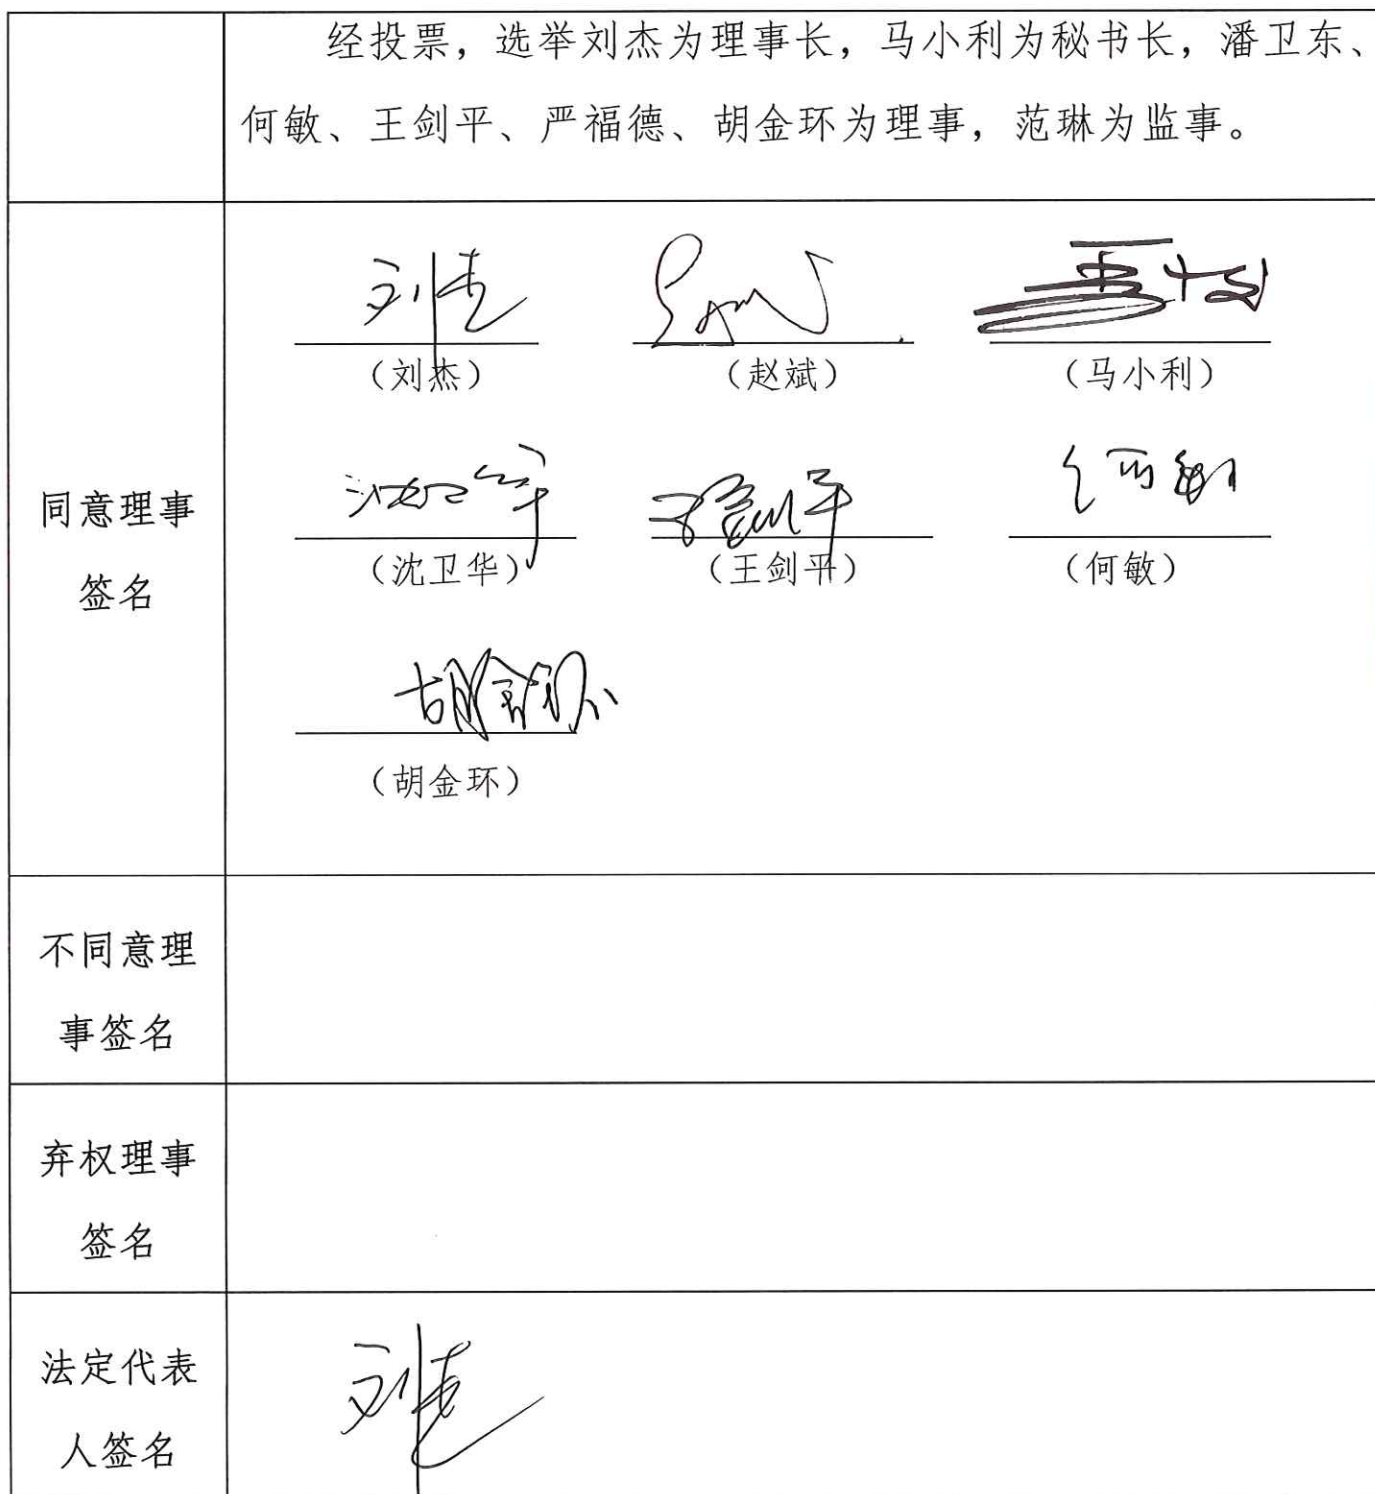 经投票，选举刘杰为理事长，马小利为秘书长，潘卫东、
何敏、王剑平、严福德、胡金环为理事，范琳为监事。
同意理事
签名
刘杰
（刘杰）
（赵斌）
（马小利）
沈卫华
王剑平
何敏
（沈卫华）
（王剑平）
（何敏）
胡金环
（胡金环）
不同意理
事签名
弃权理事
签名
法定代表
人签名
刘杰